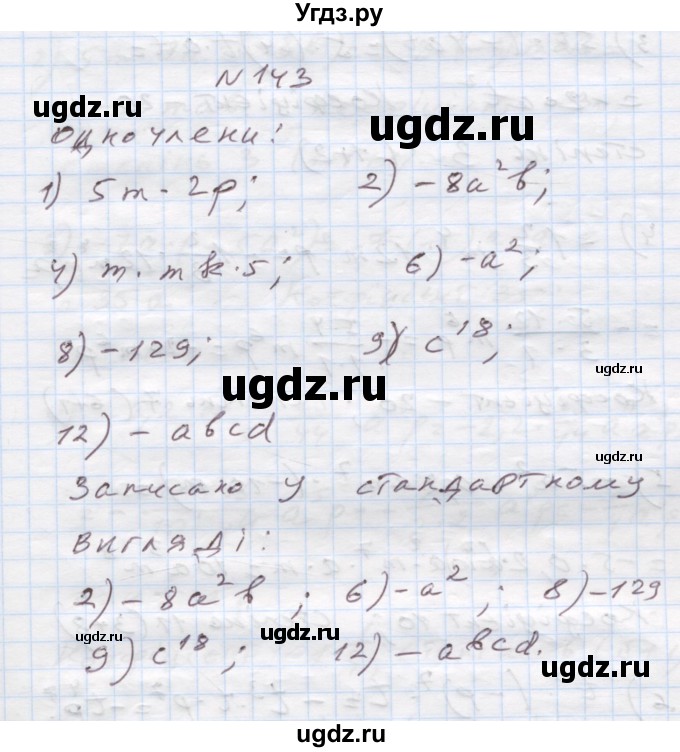 Угдз.ру
N 143
ugdz.ru
ugdz.ru
одночлени:
1) 5m · 2p; 2) -8a²b;
4) m · m k · 5; 6) -a²;
8) -129; 9) c¹⁸;
ugdz.ru
ugdz.ru
12) - abcd
Записано у стандартному
вигляді:
2) -8a²b; 6) -a²; 8) -129
ugdz.ru
ugdz.ru
9) c¹⁸; 12) - abcd.
ugdz.ru
ugdz.ru